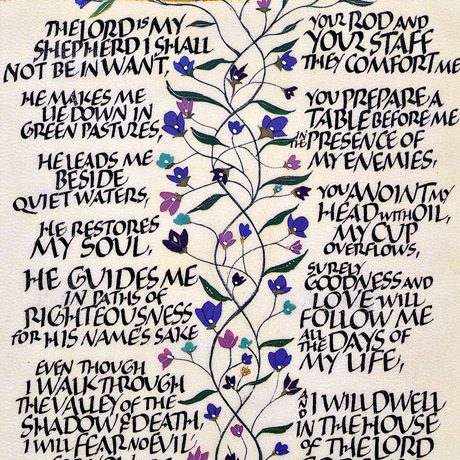 THE LORD IS MY
SHEPHERD I SHALL
NOT BE IN WANT,
HE MAKES ME
LIE DOWN IN
GREEN PASTURES,
HE LEADS ME
BESIDE
QUIET WATERS,
HE RESTORES
MY SOUL,
HE GUIDES ME
IN PATHS OF
RIGHTEOUSNESS
FOR HIS NAME'S SAKE
EVEN THOUGH
I WALK THROUGH
THE VALLEY OF THE
SHADOW OF DEATH,
I WILL FEAR NO EVIL,
YOUR ROD AND
YOUR STAFF
THEY COMFORT ME
YOU PREPARE A
TABLE BEFORE ME
IN THE PRESENCE OF
MY ENEMIES,
YOU ANOINT MY
HEAD WITH OIL,
MY CUP
OVERFLOWS,
SURELY
GOODNESS AND
LOVE WILL
FOLLOW ME
ALL THE DAYS OF
MY LIFE,
AND I WILL DWELL
IN THE HOUSE
OF THE LORD